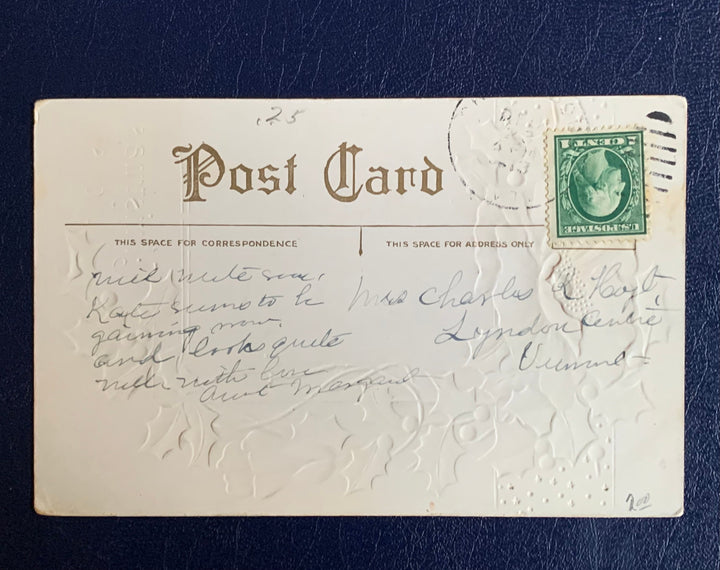 .25
Post Card
THIS SPACE FOR CORRESPONDENCE
THIS SPACE FOR ADDRESS ONLY
U.S. POSTAGE
1 CENT 1
will write soon.
Kate seems to be
gaining now.
and looks quite
well. with love
Aunt Margaret
Mrs Charles R Hoyt,
Lyndon Centre
Vermont
2.00